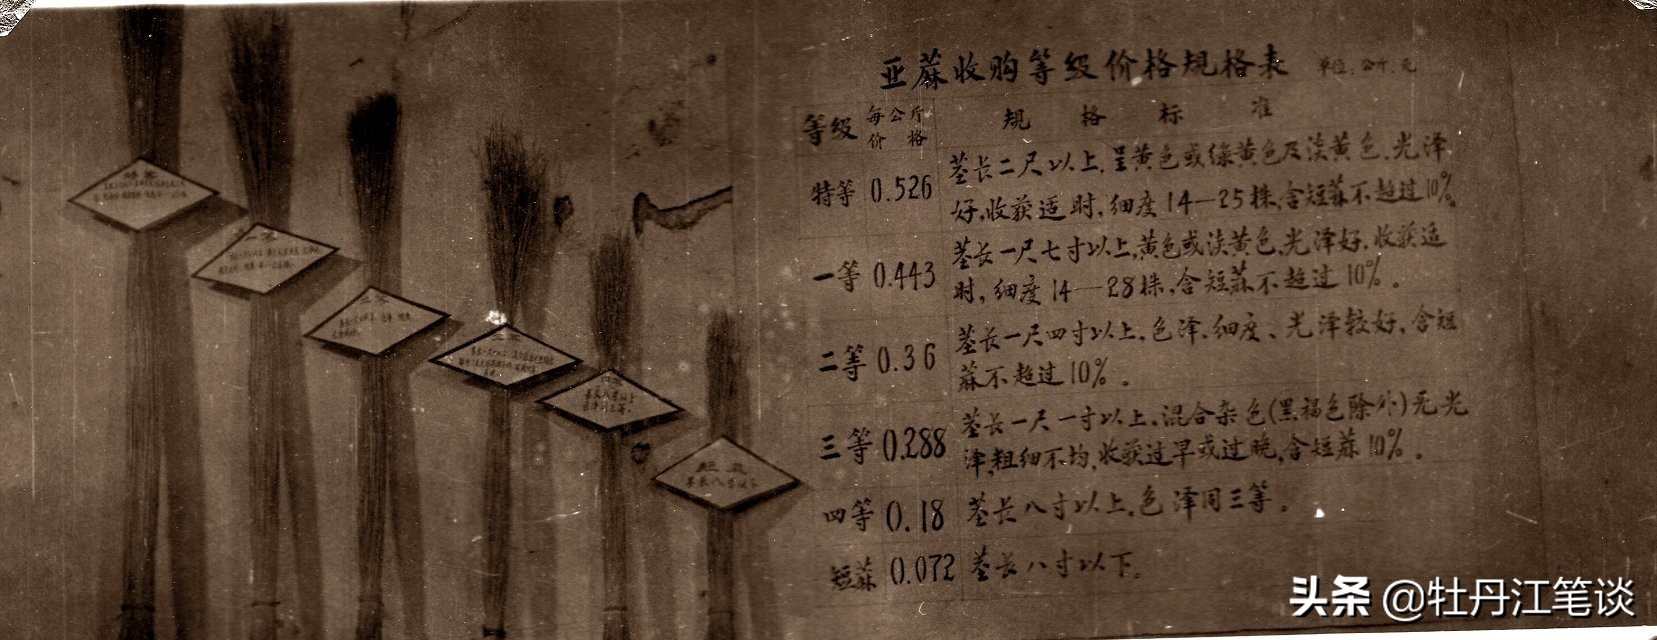 亚蔴收购等级价格规格表 单位:公斤、元
等级 每公斤价格 规格标准
特等 0.526 茎长二尺以上,呈黄色或绿黄色及淡黄色,光泽
好,收获适时,细度14—25株,含短蔴不超过10%。
一等 0.443 茎长一尺七寸以上,黄色或淡黄色,光泽好,收获适
时,细度14—28株,含短蔴不超过10%。
二等 0.36 茎长一尺四寸以上,色泽、细度、光泽较好,含短
蔴不超过10%。
三等 0.288 茎长一尺一寸以上,混合杂色(黑褐色除外)无光
泽,粗细不均,收获过早或过晚,含短蔴10%。
四等 0.18 茎长八寸以上,色泽同三等。
短蔴 0.072 茎长八寸以下。
特等
一等
二等
三等
四等
头条 @牡丹江笔谈